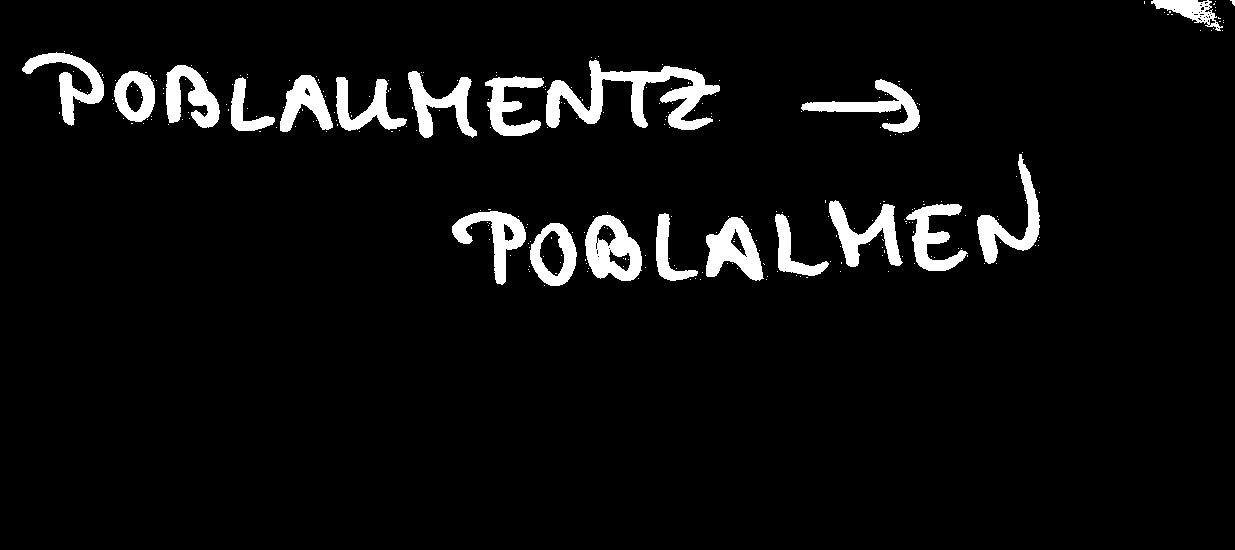 POBLAUMENTZ →
POBLALMEN